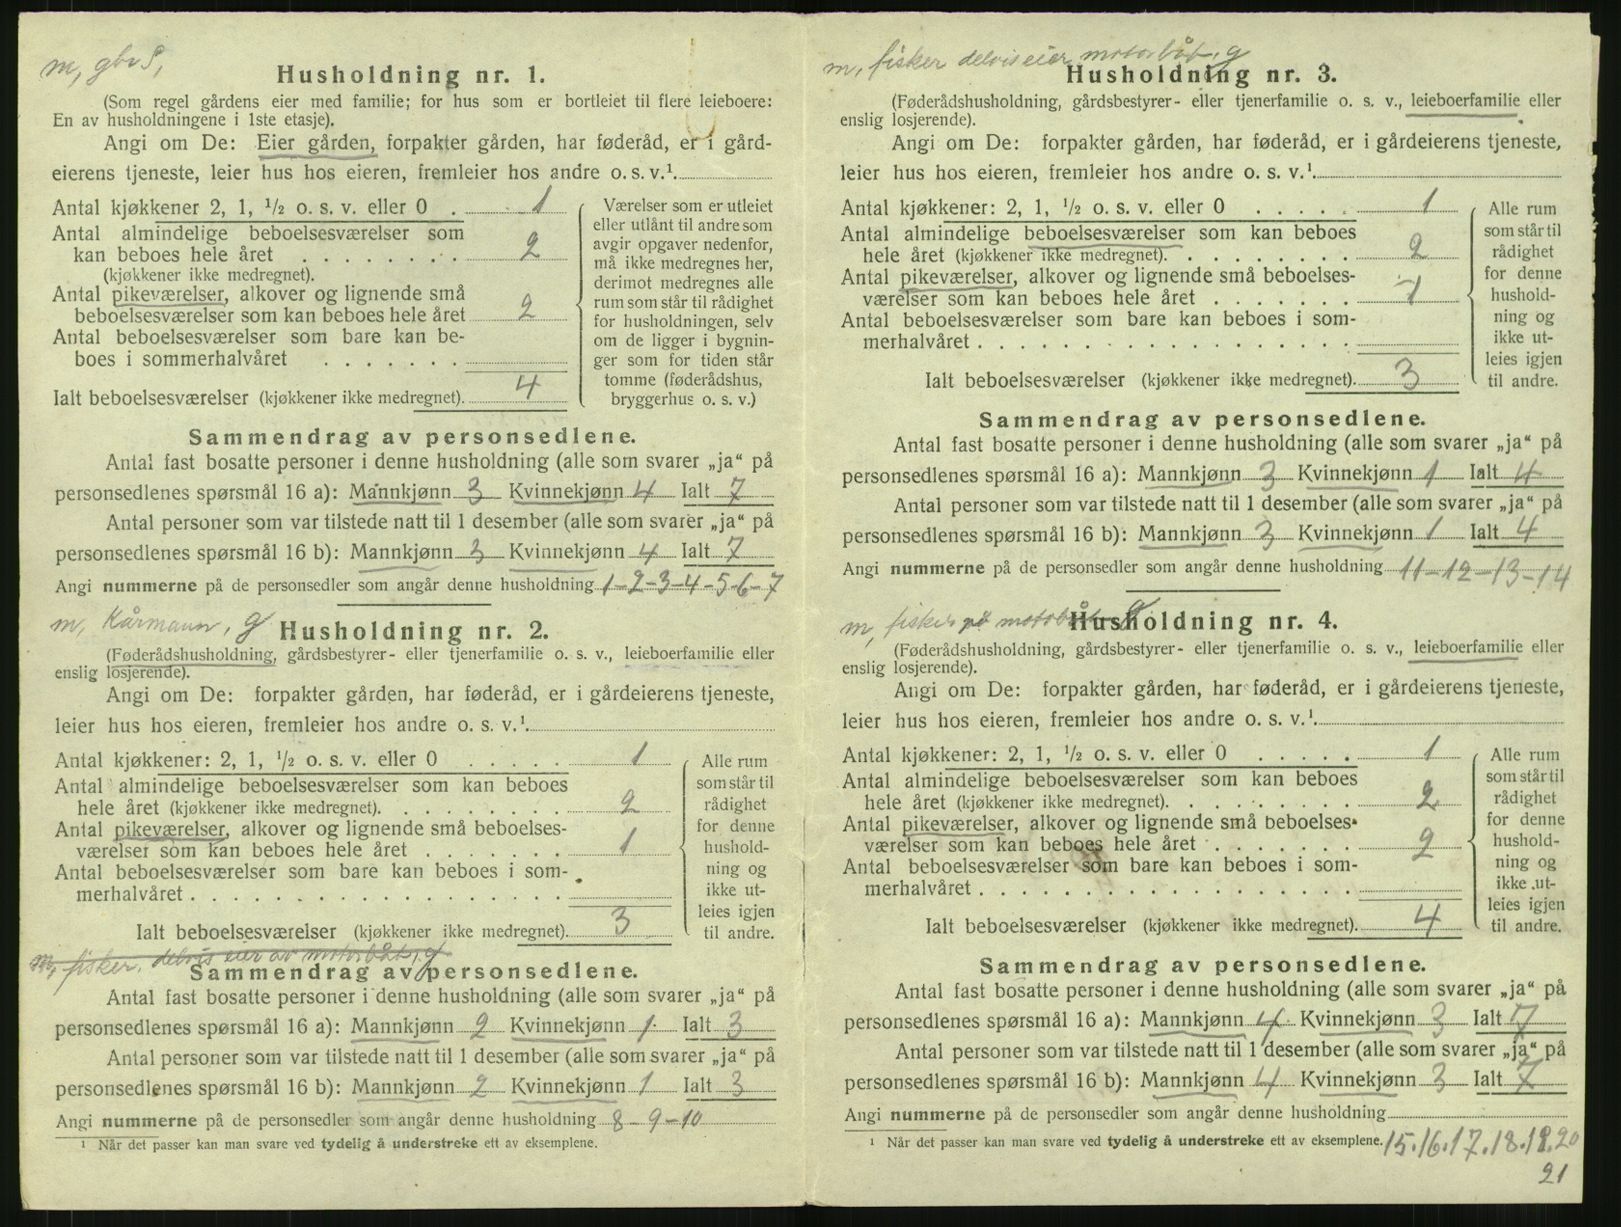 m, gbr S,
Husholdning nr. 1.
(Som regel gårdens eier med familie; for hus som er bortleiet til flere leieboere:
En av husholdningene i 1ste etasje).
Angi om De: Eier gården, forpakter gården, har føderåd, er i gård-
eierens tjeneste, leier hus hos eieren, fremleier hos andre o. s. v.¹
Antal kjøkkener 2, 1, ½ o. s. v. eller 0 . 1
Antal almindelige beboelsesværelser som
kan beboes hele året . . . . . . . . 2
(kjøkkener ikke medregnet).
Antal pikeværelser, alkover og lignende små
beboelsesværelser som kan beboes hele året 2
Antal beboelsesværelser som bare kan be-
boes i sommerhalvåret . . . . . . .
Ialt beboelsesværelser (kjøkkener ikke medregnet). 4
Værelser som er utleiet
eller utlånt til andre som
avgir opgaver nedenfor,
må ikke medregnes her,
derimot medregnes alle
rum som står til rådighet
for husholdningen, selv
om de ligger i bygnin-
ger som for tiden står
tomme (føderådshus,
bryggerhus o. s. v.)
Sammendrag av personsedlene.
Antal fast bosatte personer i denne husholdning (alle som svarer „ja“ på
personsedlenes spørsmål 16 a): Mannkjønn 3 Kvinnekjønn 4 Ialt 7
Antal personer som var tilstede natt til 1 desember (alle som svarer „ja“ på
personsedlenes spørsmål 16 b): Mannkjønn 3 Kvinnekjønn 4 Ialt 7
Angi nummerne på de personsedler som angår denne husholdning 1-2-3-4-5-6-7
m, Kårmann, g
Husholdning nr. 2.
(Føderådshusholdning, gårdsbestyrer- eller tjenerfamilie o. s. v., leieboerfamilie eller
enslig losjerende).
Angi om De: forpakter gården, har føderåd, er i gårdeierens tjeneste,
leier hus hos eieren, fremleier hos andre o. s. v.¹
Antal kjøkkener: 2, 1, ½ o. s. v. eller 0 . . . . . 1
Antal almindelige beboelsesværelser som kan beboes
hele året (kjøkkener ikke medregnet). . . . . . . . 2
Antal pikeværelser, alkover og lignende små beboelses-
værelser som kan beboes hele året . . . . . . . 1
Antal beboelsesværelser som bare kan beboes i som-
merhalvåret . . . . . . . . . . . . . . . . . .
Ialt beboelsesværelser (kjøkkener ikke medregnet). 3
Alle rum
som står til
rådighet
for denne
hushold-
ning og
ikke ut-
leies igjen
til andre.
m, fisker, delvis eier av motorbåt, g
Sammendrag av personsedlene.
Antal fast bosatte personer i denne husholdning (alle som svarer „ja“ på
personsedlenes spørsmål 16 a): Mannkjønn 2 Kvinnekjønn 1 Ialt 3
Antal personer som var tilstede natt til 1 desember (alle som svarer „ja“ på
personsedlenes spørsmål 16 b): Mannkjønn 2 Kvinnekjønn 1 Ialt 3
Angi nummerne på de personsedler som angår denne husholdning 8-9-10
¹ Når det passer kan man svare ved tydelig å understreke ett av eksemplene.
m, fisker delvis eier motorbåt, g
Husholdning nr. 3.
(Føderådshusholdning, gårdsbestyrer- eller tjenerfamilie o. s. v., leieboerfamilie eller
enslig losjerende).
Angi om De: forpakter gården, har føderåd, er i gårdeierens tjeneste,
leier hus hos eieren, fremleier hos andre o. s. v.¹
Antal kjøkkener: 2, 1, ½ o. s. v. eller 0 . . . . . 1
Antal almindelige beboelsesværelser som kan beboes
hele året (kjøkkener ikke medregnet). . . . . . . . 2
Antal pikeværelser, alkover og lignende små beboelses-
værelser som kan beboes hele året . . . . . . . 1
Antal beboelsesværelser som bare kan beboes i som-
merhalvåret . . . . . . . . . . . . . . . . . .
Ialt beboelsesværelser (kjøkkener ikke medregnet). 3
Alle rum
som står til
rådighet
for denne
hushold-
ning og
ikke ut-
leies igjen
til andre.
Sammendrag av personsedlene.
Antal fast bosatte personer i denne husholdning (alle som svarer „ja“ på
personsedlenes spørsmål 16 a): Mannkjønn 3 Kvinnekjønn 1 Ialt 4
Antal personer som var tilstede natt til 1 desember (alle som svarer „ja“ på
personsedlenes spørsmål 16 b): Mannkjønn 3 Kvinnekjønn 1 Ialt 4
Angi nummerne på de personsedler som angår denne husholdning 11-12-13-14
m, fisker på motorbåt g
Husholdning nr. 4.
(Føderådshusholdning, gårdsbestyrer- eller tjenerfamilie o. s. v., leieboerfamilie eller
enslig losjerende).
Angi om De: forpakter gården, har føderåd, er i gårdeierens tjeneste,
leier hus hos eieren, fremleier hos andre o. s. v.¹
Antal kjøkkener: 2, 1, ½ o. s. v. eller 0 . . . . . 1
Antal almindelige beboelsesværelser som kan beboes
hele året (kjøkkener ikke medregnet). . . . . . . . 2
Antal pikeværelser, alkover og lignende små beboelses-
værelser som kan beboes hele året . . . . . . . 2
Antal beboelsesværelser som bare kan beboes i som-
merhalvåret . . . . . . . . . . . . . . . . . .
Ialt beboelsesværelser (kjøkkener ikke medregnet). 4
Alle rum
som står til
rådighet
for denne
hushold-
ning og
ikke ut-
leies igjen
til andre.
Sammendrag av personsedlene.
Antal fast bosatte personer i denne husholdning (alle som svarer „ja“ på
personsedlenes spørsmål 16 a): Mannkjønn 4 Kvinnekjønn 3 Ialt 7
Antal personer som var tilstede natt til 1 desember (alle som svarer „ja“ på
personsedlenes spørsmål 16 b): Mannkjønn 4 Kvinnekjønn 3 Ialt 7
Angi nummerne på de personsedler som angår denne husholdning
¹ Når det passer kan man svare ved tydelig å understreke ett av eksemplene. 15.16.17.18.19.20
21